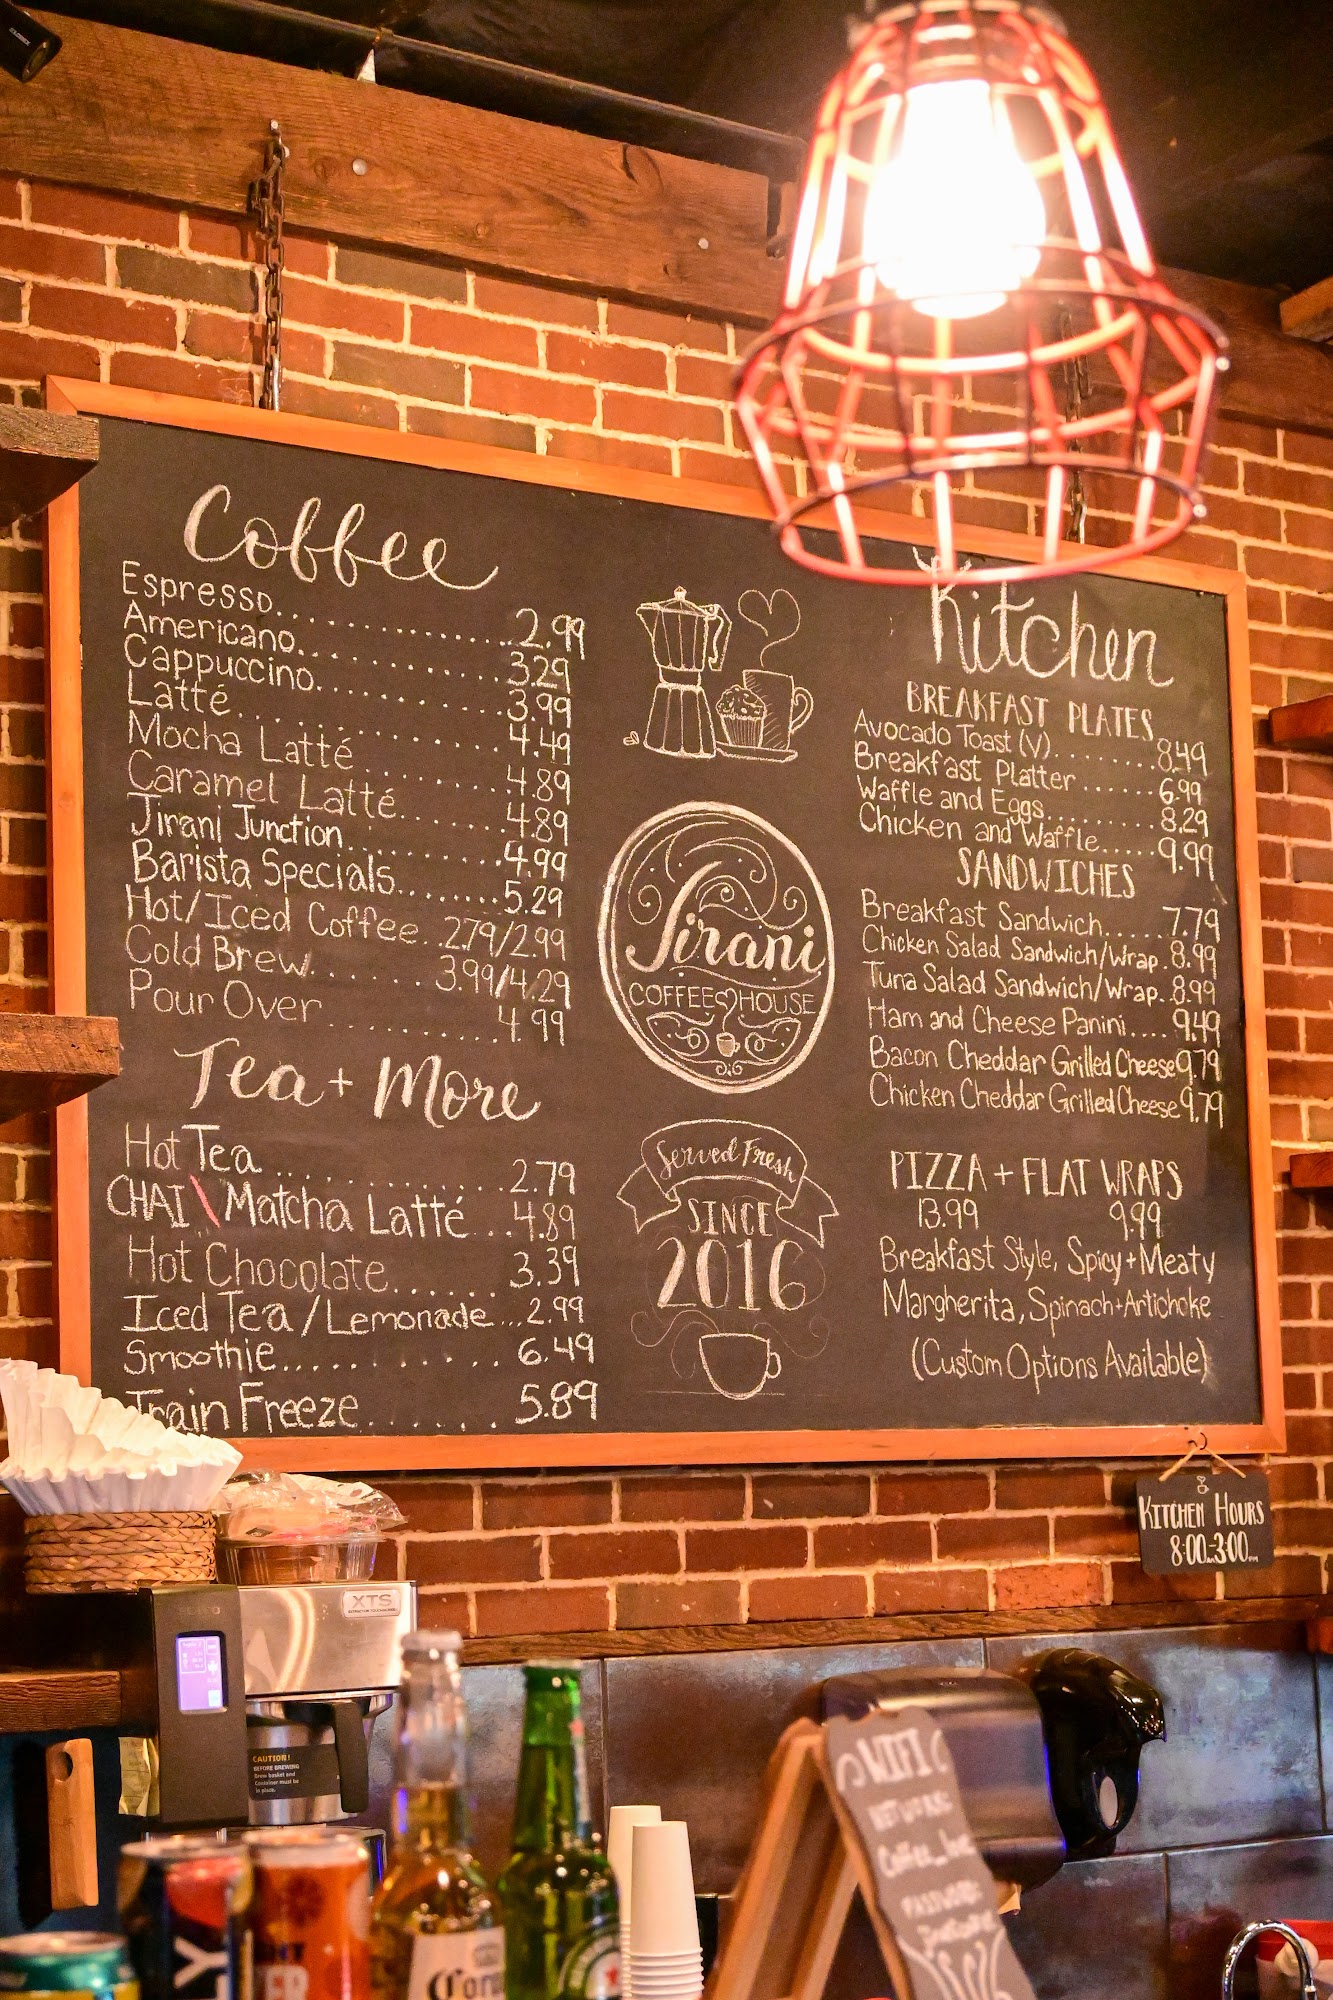 Coffee
Espresso.................2.99
Americano...............3.29
Cappuccino.............3.99
Latté....................4.49
Mocha Latté..........4.89
Caramel Latté........4.89
Jirani Junction..........4.99
Barista Specials........5.29
Hot/Iced Coffee..2.79/2.99
Cold Brew.......3.99/4.29
Pour Over...........4.99
Tea + More
Hot Tea................2.79
CHAI \ Matcha Latté...4.89
Hot Chocolate.......3.39
Iced Tea / Lemonade...2.99
Smoothie............6.49
Train Freeze.......5.89
Jirani
COFFEE HOUSE
Served Fresh
SINCE
2016
Kitchen
BREAKFAST PLATES
Avocado Toast (V)........8.49
Breakfast Platter......6.99
Waffle and Eggs.........8.29
Chicken and Waffle.....9.99
SANDWICHES
Breakfast Sandwich.....7.79
Chicken Salad Sandwich/Wrap.8.99
Tuna Salad Sandwich/Wrap..8.99
Ham and Cheese Panini....9.49
Bacon Cheddar Grilled Cheese 9.79
Chicken Cheddar Grilled Cheese 9.79
PIZZA + FLAT WRAPS
13.99 9.99
Breakfast Style, Spicy + Meaty
Margherita, Spinach + Artichoke
(Custom Options Available)
KITCHEN HOURS
8:00AM-3:00PM
XTS
CAUTION!
BEFORE BREWING
Brew basket and
Container must be
in place.
WIFI
NETWORK:
PASSWORD: